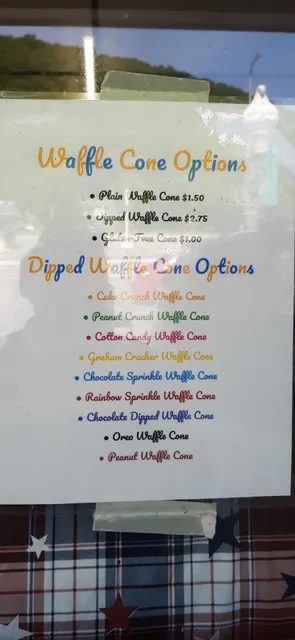 Waffle Cone Options
• Plain Waffle Cone $1.50
• Dipped Waffle Cone $2.75
• Gluten-Free Cone $1.00
Dipped Waffle Cone Options
• Cake Crunch Waffle Cone
• Peanut Crunch Waffle Cone
• Cotton Candy Waffle Cone
• Graham Cracker Waffle Cone
• Chocolate Sprinkle Waffle Cone
• Rainbow Sprinkle Waffle Cone
• Chocolate Dipped Waffle Cone
• Oreo Waffle Cone
• Peanut Waffle Cone